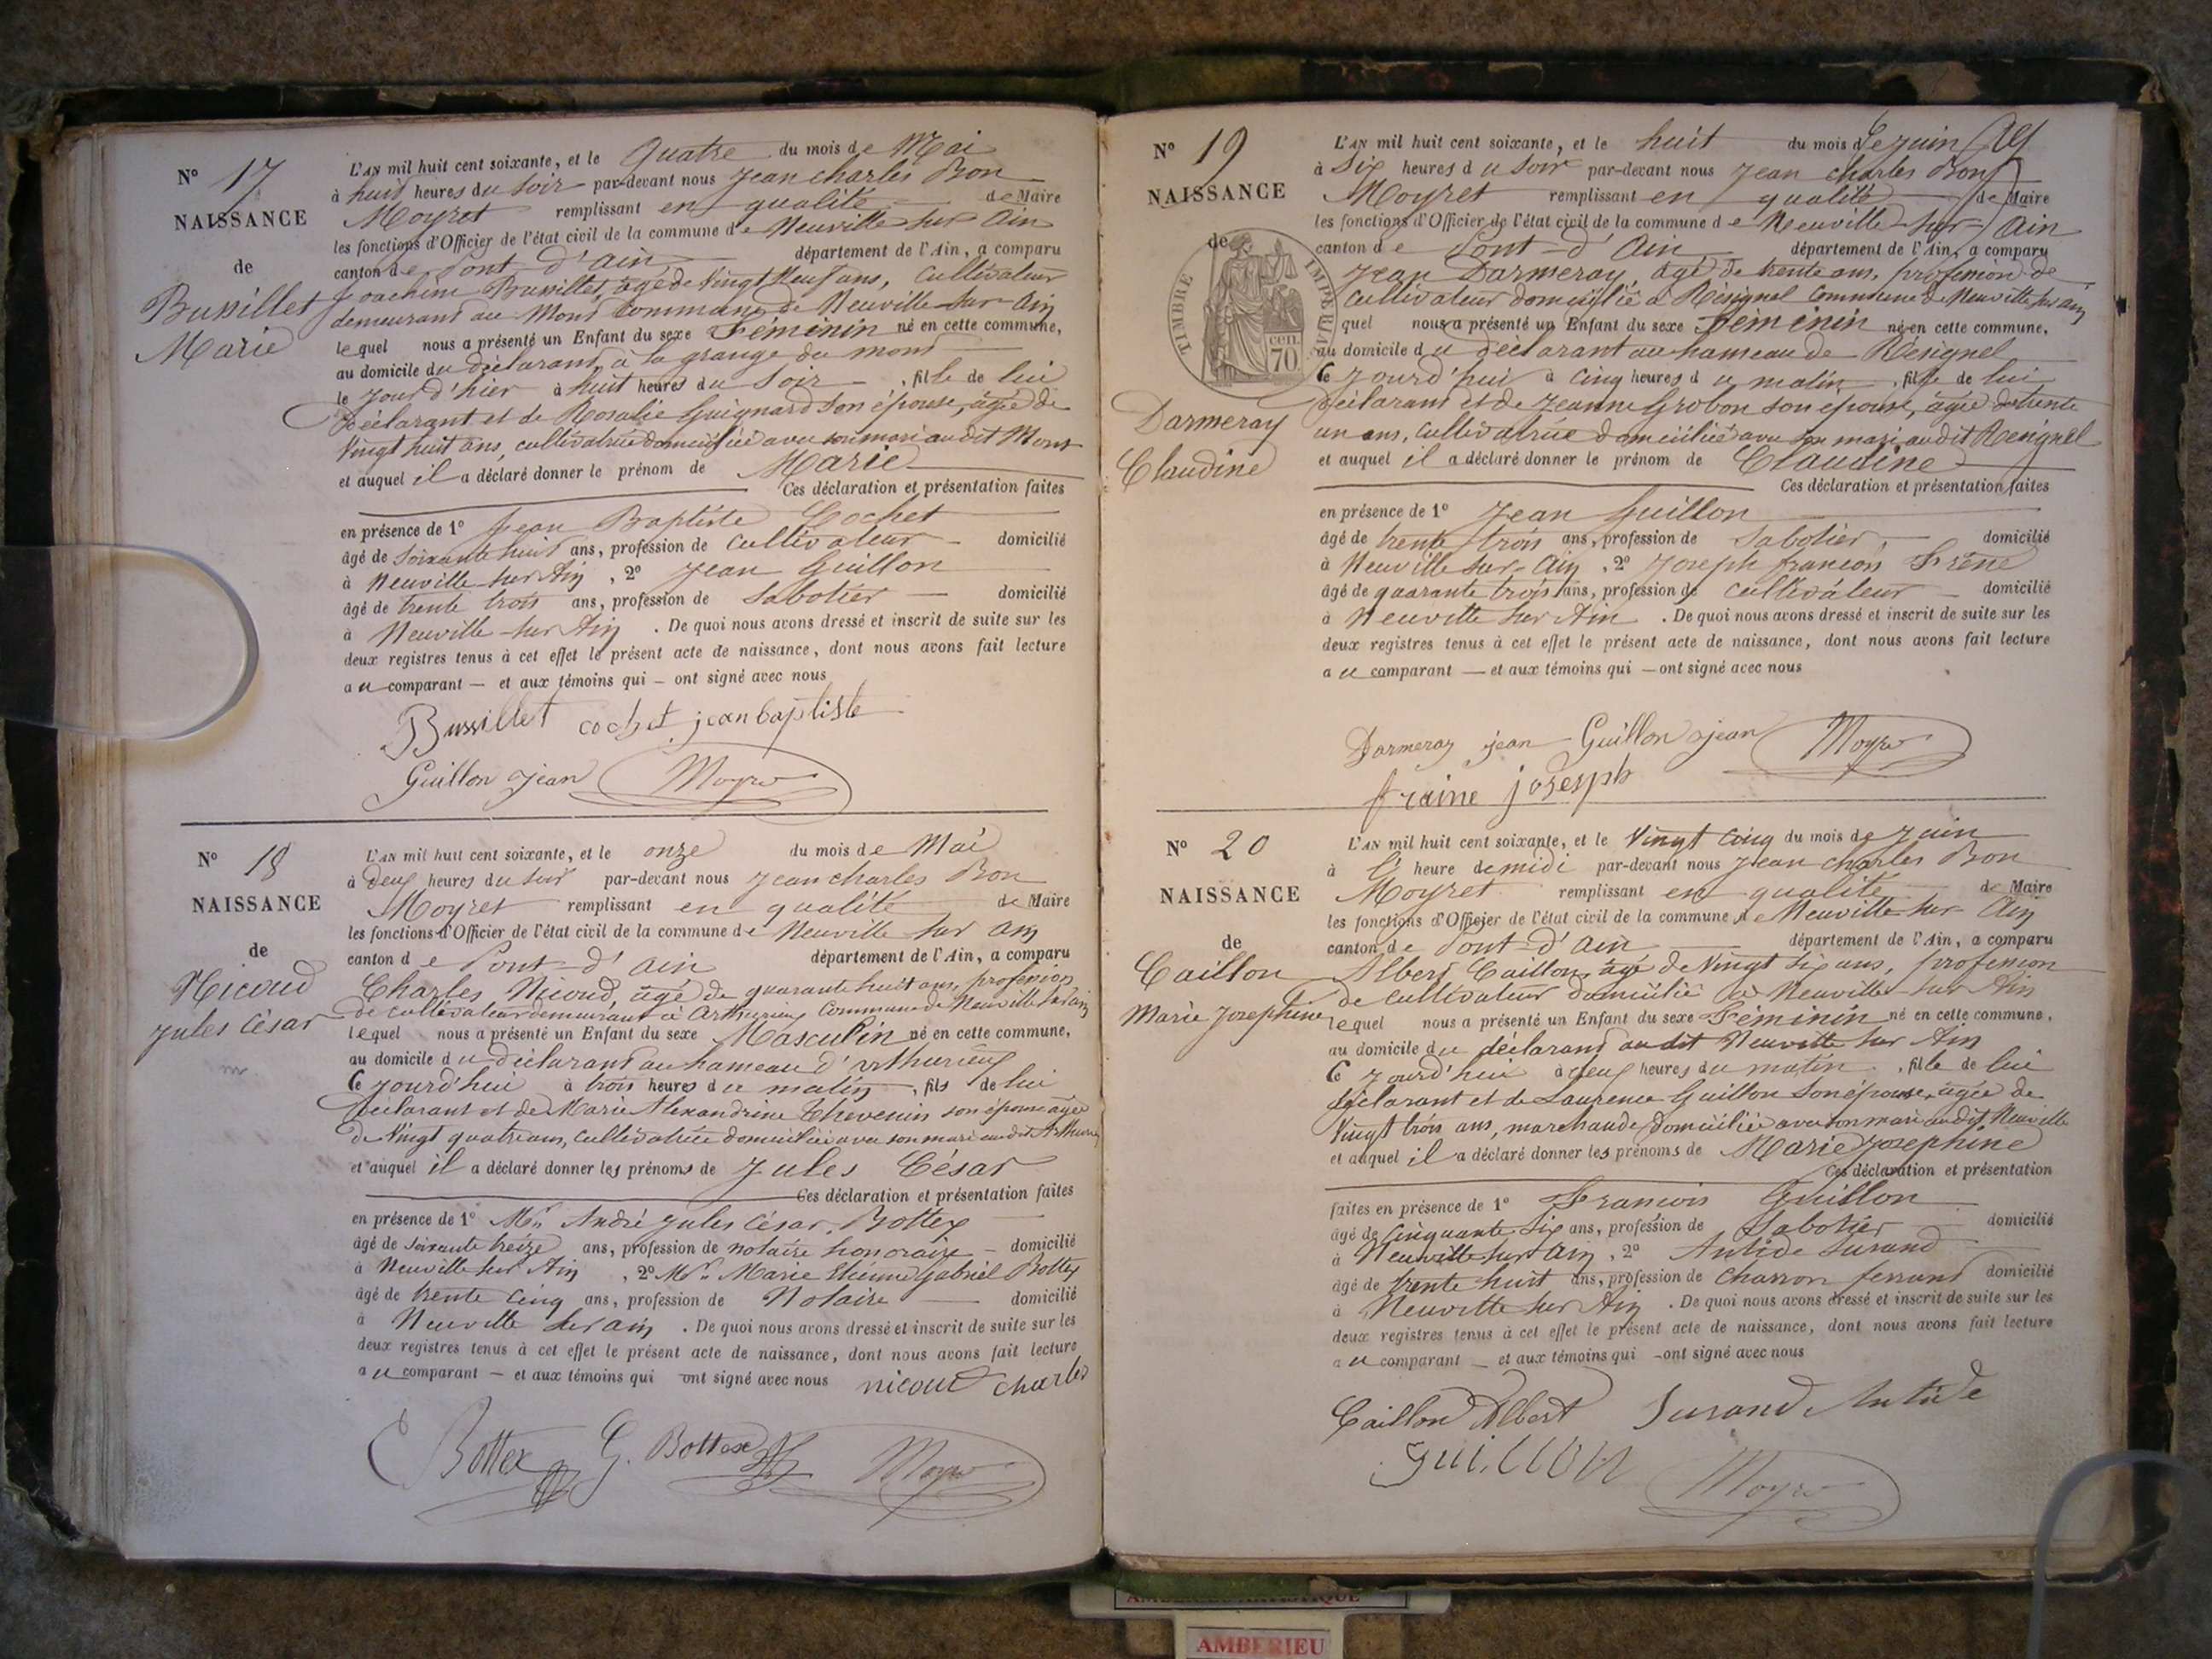 N° 17
NAISSANCE
de
Bussillet
Marie
L'AN mil huit cent soixante, et le Quatre du mois de Mai
à huit heures du Soir par-devant nous Jean charles Bon
Moyret remplissant en qualité de Maire
les fonctions d'Officier de l'état civil de la commune de Neuville sur Ain
canton de Pont-d'Ain département de l'Ain, a comparu
Joachim Bussillet, âgé de Vingt Neuf ans, Cultivateur
demeurant au Mont Commune de Neuville-sur-Ain
lequel nous a présenté un Enfant du sexe Féminin né en cette commune,
au domicile du déclarant, à la grange du mont
le Jour d'hier à huit heures du Soir, fille de lui
Déclarant et de Rosalie Guignard son épouse, âgée de
Vingt huit ans, cultivatrice domiciliée avec son mari au dit Mont
et auquel il a déclaré donner le prénom de Marie
Ces déclaration et présentation faites
en présence de 1° Jean Baptiste Cochet
âgé de Soixante huit ans, profession de Cultivateur domicilié
à Neuville-sur Ain, 2° Jean Guillon
âgé de trente trois ans, profession de Sabotier domicilié
à Neuville-sur Ain. De quoi nous avons dressé et inscrit de suite sur les
deux registres tenus à cet effet le présent acte de naissance, dont nous avons fait lecture
au comparant — et aux témoins qui — ont signé avec nous
Bussillet cochet jean baptiste
Guillon jean Moyret
N° 18
NAISSANCE
de
Nicoud
Jules César
L'AN mil huit cent soixante, et le onze du mois de Mai
à deux heures du Soir par-devant nous Jean charles Bon
Moyret remplissant en qualité de Maire
les fonctions d'Officier de l'état civil de la commune de Neuville sur Ain
canton de Pont-d'Ain département de l'Ain, a comparu
Charles Nicoud, âgé de quarante huit ans, profession
de cultivateur demeurant à Arthurieux Commune de Neuville sur Ain
lequel nous a présenté un Enfant du sexe Masculin né en cette commune,
au domicile du déclarant au hameau d'Arthurieux
Ce jourd'hui à trois heures du matin, fils de lui
Déclarant et de Marie Alexandrine Thevenin son épouse âgée
de Vingt quatre ans, Cultivatrice domiciliée avec son mari au dit Arthurieux
et auquel il a déclaré donner les prénoms de Jules César
Ces déclaration et présentation faites
en présence de 1° Mr. André Jules César Bottex
âgé de Soixante treize ans, profession de notaire honoraire domicilié
à Neuville sur Ain, 2° Mr. Marie Etienne Gabriel Bottex
âgé de trente cinq ans, profession de Notaire domicilié
à Neuville sur Ain. De quoi nous avons dressé et inscrit de suite sur les
deux registres tenus à cet effet le présent acte de naissance, dont nous avons fait lecture
au comparant — et aux témoins qui ont signé avec nous nicoud charles
Bottex G. Bottex Moyret
N° 19
NAISSANCE
de
TIMBRE IMPERIAL
70 cen.
Darmeray
Claudine
L'AN mil huit cent soixante, et le huit du mois de Juin
à Six heures du Soir par-devant nous Jean charles Bon
Moyret remplissant en qualité de Maire
les fonctions d'Officier de l'état civil de la commune de Neuville-sur-Ain
canton de Pont-d'Ain département de l'Ain, a comparu
Jean Darmeray, âgé de trente ans, profession de
Cultivateur domicilié à Résignel Commune de Neuville sur Ain
quel nous a présenté un Enfant du sexe Féminin né en cette commune,
au domicile du déclarant au hameau de Résignel
Ce Jourd'hui à Cinq heures du matin, fille de lui
Déclarant et de Jeanne Grobon son épouse, âgée de trente
un ans, Cultivatrice domiciliée avec son mari au dit Resignel
et auquel il a déclaré donner le prénom de Claudine
Ces déclaration et présentation faites
en présence de 1° Jean Guillon
âgé de trente trois ans, profession de Sabotier domicilié
à Neuville sur-Ain, 2° Joseph françois Frène
âgé de quarante trois ans, profession de Cultivateur domicilié
à Neuville sur Ain. De quoi nous avons dressé et inscrit de suite sur les
deux registres tenus à cet effet le présent acte de naissance, dont nous avons fait lecture
au comparant — et aux témoins qui — ont signé avec nous
Darmeray jean Guillon jean Moyret
fraine joseph
N° 20
NAISSANCE
de
Caillon
Marie Josephine
L'AN mil huit cent soixante, et le Vingt Cinq du mois de Juin
à l' heure de midi par-devant nous Jean charles Bon
Moyret remplissant en qualité de Maire
les fonctions d'Officier de l'état civil de la commune de Neuville-sur-Ain
canton de Pont-d'Ain département de l'Ain, a comparu
Albert Caillon, âgé de Vingt Six ans, profession
de cultivateur domicilié à Neuville-sur Ain
lequel nous a présenté un Enfant du sexe Féminin né en cette commune,
au domicile du déclarant au dit Neuville sur Ain
Ce Jourd'hui à deux heures du matin, fille de lui
déclarant et de Laurence Guillon son épouse, âgée de
Vingt trois ans, marchande, domiciliée avec son mari au dit Neuville
et auquel il a déclaré donner les prénoms de Marie Josephine
Ces déclaration et présentation
faites en présence de 1° François Guillon
âgé de Cinquante Six ans, profession de Sabotier domicilié
à Neuville sur Ain, 2° Antide Jurand
âgé de trente huit ans, profession de Charron ferrant domicilié
à Neuville sur Ain. De quoi nous avons dressé et inscrit de suite sur les
deux registres tenus à cet effet le présent acte de naissance, dont nous avons fait lecture
au comparant — et aux témoins qui - ont signé avec nous
Caillon Albert Jurand Antide
Guillon Moyret
AMBERIEU